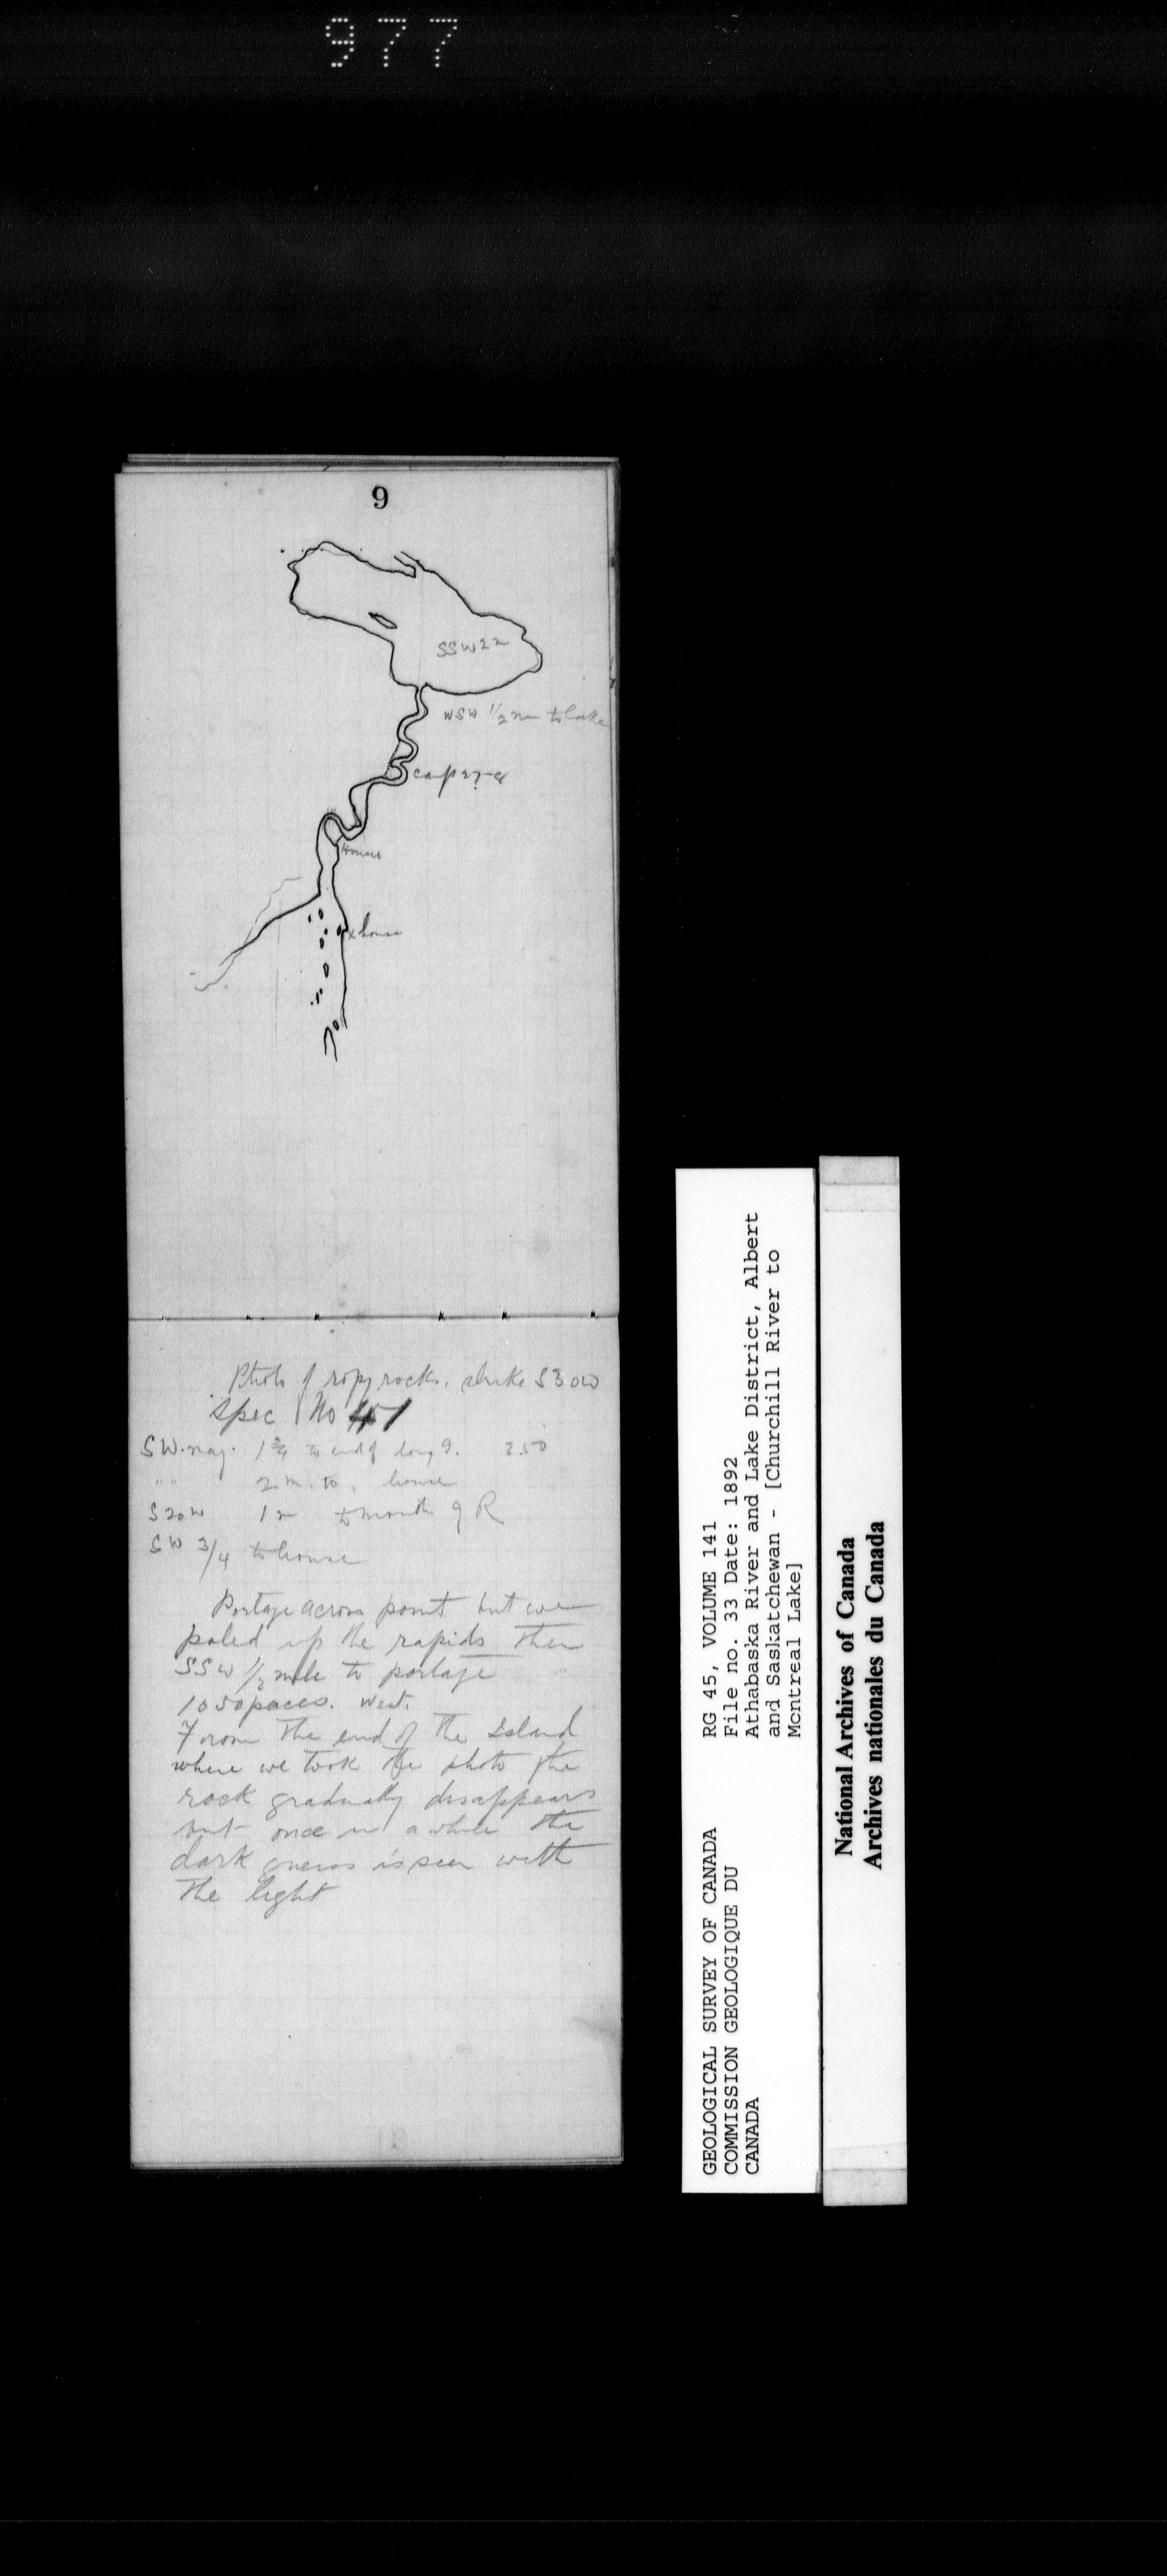 977
9
SSW 22
WSW 1/2 m to lake
Camp 27-8
House
x house
Photo of ropy rocks. strike S30W
Spec No 451
SW. mag. 1 3/4 to end of long 2.50
" " 2 m. to house
S20W 1 m to mouth of R
SW 3/4 to house
Portage across point but we
poled up the rapids then
SSW 1/2 mile to portage
1050 paces. West.
From the end of the Island
where we took the photo the
rock gradually disappears
but once in a while the
dark gneiss is seen with
the light
GEOLOGICAL SURVEY OF CANADA
COMMISSION GEOLOGIQUE DU
CANADA
RG 45, VOLUME 141
File no. 33 Date: 1892
Athabaska River and Lake District, Albert
and Saskatchewan - [Churchill River to
Montreal Lake]
National Archives of Canada
Archives nationales du Canada